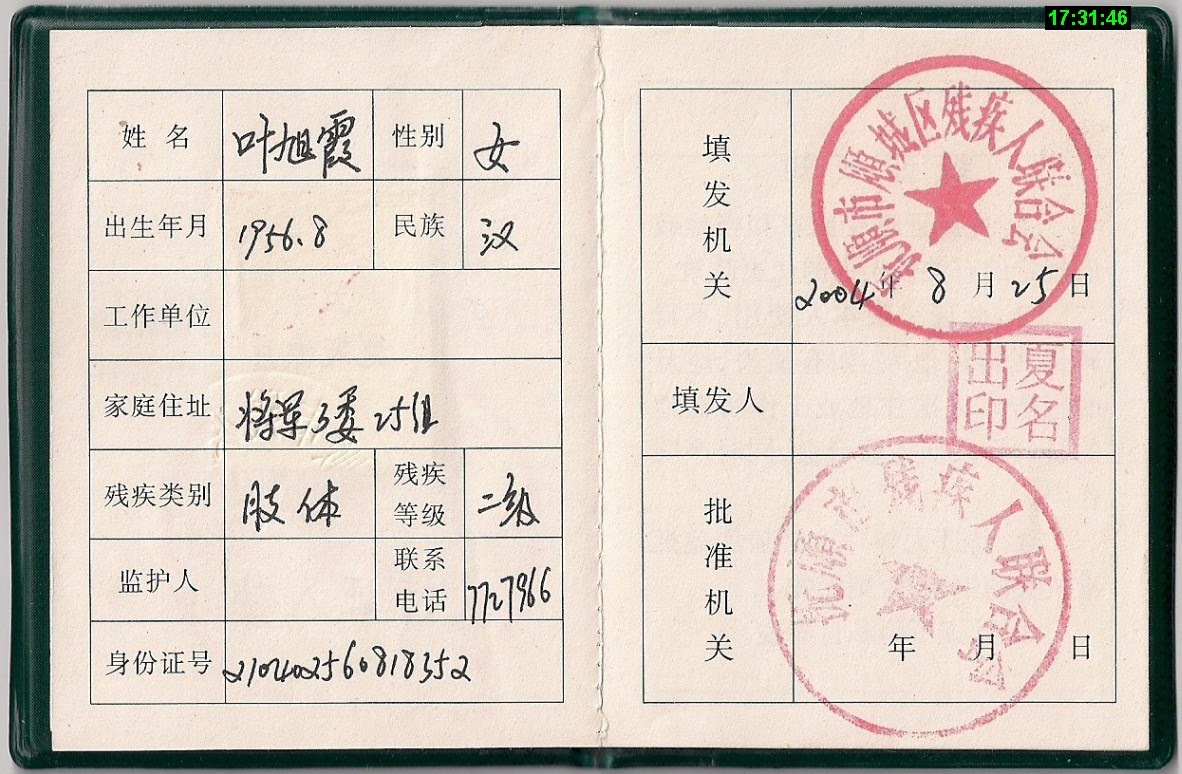 17:31:46
姓名 叶旭霞 性别 女
出生年月 1956.8 民族 汉
工作单位
家庭住址 将军3委25组
残疾类别 肢体 残疾等级 二级
监护人 联系电话 7727966
身份证号 210402560818352
填发机关
抚顺市顺城区残疾人联合会
2004年8月25日
填发人
夏名出印
批准机关
抚顺市残疾人联合会
年 月 日